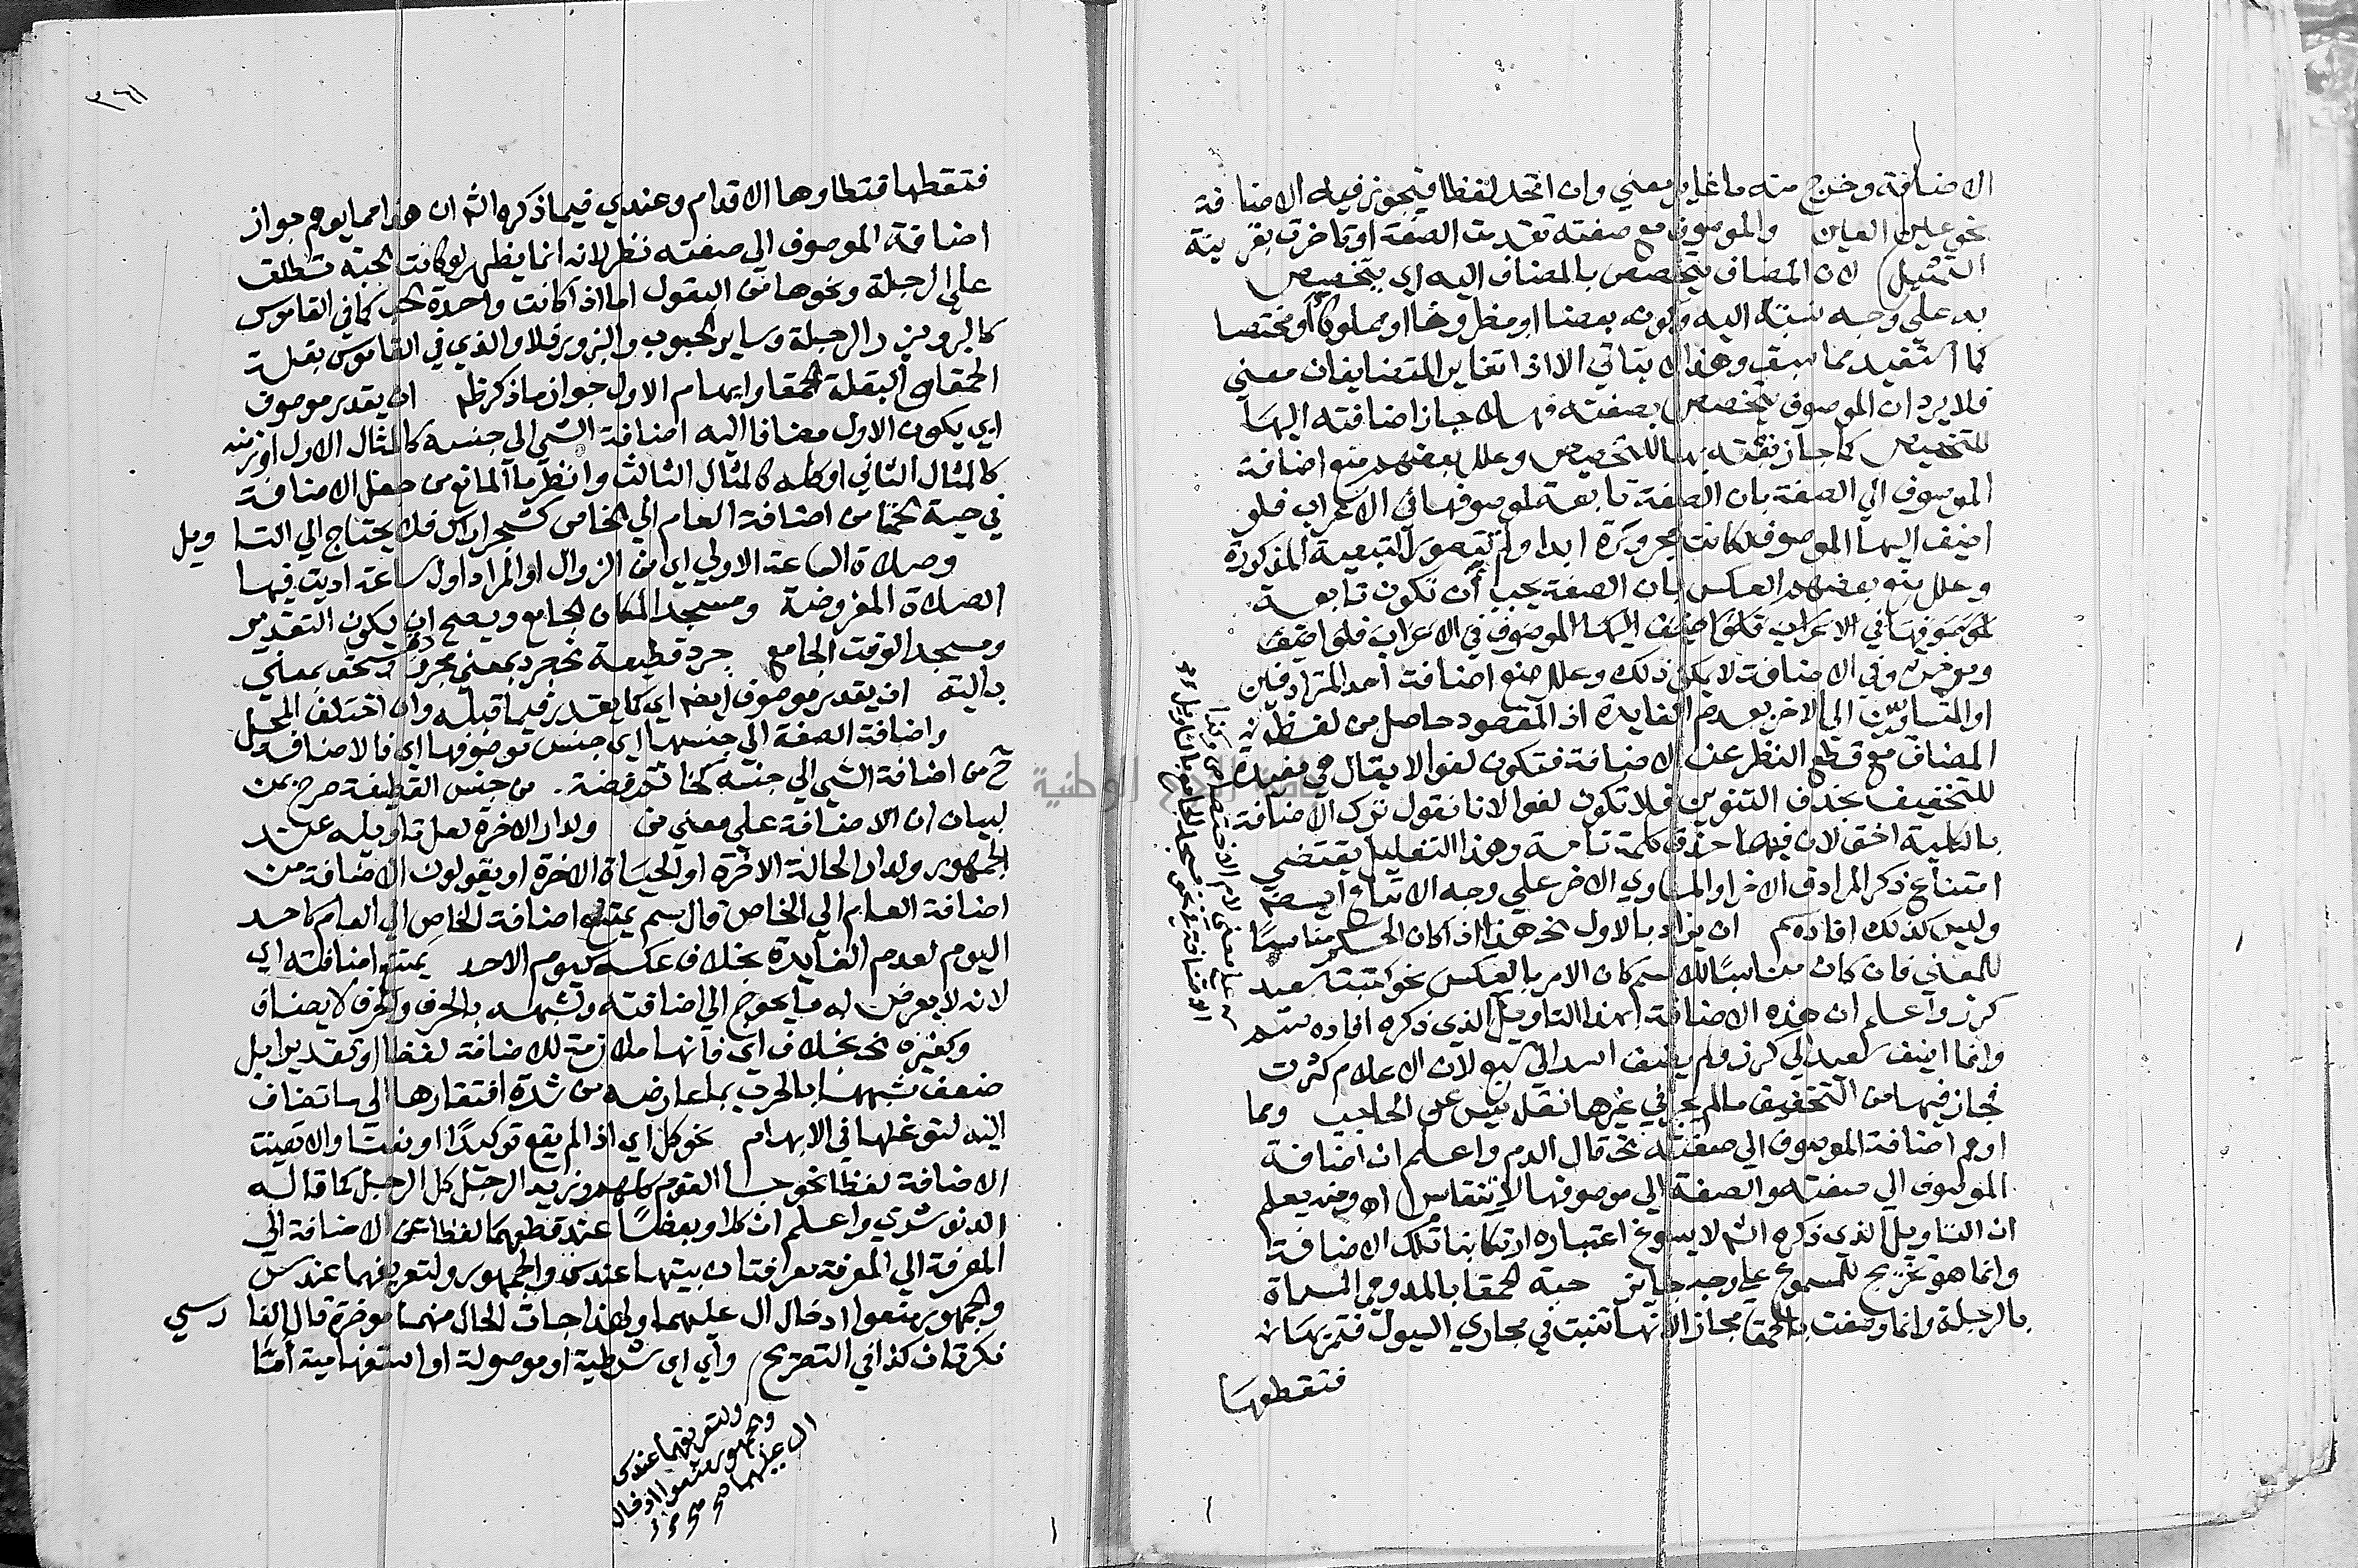 الاضافة وخرج منه ما غاير معني وان اتحد لفظا فيجوز فيه الاضافة
نحو عين العين والموصوف مع صفته تقدمت الصفة او تاخرت بقرينة
التمثيل لان المضاف يتخصص بالمضاف اليه اي يتخصص
به علي وجه نسبته اليه وكونه بعضا او مظروفا او مملوكا او مختصا
كما استفيد مما سبق وهذا لا يتاتي الا اذا تغاير المتضايفان معني
فلا يرد ان الموصوف يتخصص بصفته فهلا جاز اضافته اليها
للتخصيص كما جاز نعته بها للتخصيص وعلل بعضهم منع اضافة
الموصوف الي الصفة بان الصفة تابعة لموصوفها في الاعراب فلو
اضيف اليها الموصوف لكانت مجرورة ابدا ولم تتصور التبعية المذكورة
وعلل بعضهم العكس بان الصفة يجب ان تكون تابعة
لموصوفها في الاعراب فلو اضيف اليها الموصوف في الاعراب فلو اضيف
وفي الاضافة لا يمكن ذلك وعلل منع اضافة احد المترادفين
او المتساويين الي الاخر بعدم الفايدة اذ المقصود حاصل من لفظ
المضاف مع قطع النظر عن الاضافة فتكون لغوا لا يقال هي مفيدة
للتخفيف بحذف التنوين فلا تكون لغوا لانا نقول ترك الاضافة
بالكلية اخف لان فيها حذف كلمة تامة وهذا التعليل يقتضي
امتناع ذكر المرادف الاخر او المساوي الاخر علي وجه الاتباع ايضا
وليس كذلك افاده سم ان يراد بالاول الخ هذا اذا كان الحكم مناسبا
للمعني فان كان مناسبا للاسم كان الامر بالعكس نحو كتبت سعيد
كرز واعلم ان هذه الاضافة بهذا التاويل الذي ذكره افاده سم
وانما اضيف سعيد الي كرز ولم يضف اسد الي سبع لان الاعلام كثرت
فجاز فيها من التخفيف ما لم يجز في غيرها نقله يس عن ابن الحاجب ومما
اوهم اضافة الموصوف الي صفته الخ قال الدم واعلم ان اضافة
الموصوف الي صفته والصفة الي موصوفها لا تنقاس اه ومنه يعلم
ان التاويل الذي ذكره الش لا يسوغ اعتباره ارتكابنا تلك الاضافة
وانما هو تخريج للمسموع علي وجه جايز حبة الحمقا بالمد وهي المسماة
بالرجلة وانما وصفت بالحمق مجازا لانها تنبت في مجاري السيول فتمر بها
فتقطعها
٣٦١
فتقطعها فتطاوها الاقدام وعندي فيما ذكره الش ان هذا مما يوهم جواز
اضافة الموصوف الي صفته نظر لانه انما يظهر لو كانت الحبة تطلق
علي الرجلة ونحوها من البقول اما اذا كانت واحدة الحب كما في القاموس
كالبر وبزر الرجلة وساير الحبوب والبزور فلا والذي في القاموس بقلة
الحمقا والبقلة الحمقا وايهام الاول جواز ما ذكر ظم ان يقدر موصوف
اي يكون الاول مضافا اليه اضافة الشي الي جنسه كالمثال الاول او زمنه
كالمثال الثاني او مكانه كالمثال الثالث وانظر ما المانع من جعل الاضافة
في حبة الحمقا من اضافة العام الي الخاص كشجر اراك فلا يحتاج الي التاويل
وصلاة الساعة الاولي اي من الزوال او المراد اول ساعة اديت فيها
الصلاة المفروضة ومسجد المكان الجامع ويصح ان يكون التقدير
ومسجد الوقت الجامع جرد قطيفة فجرد بمعني مجرودة وسحق بمعني
بالية ان يقدر موصوف ايضا اي كما يقدر فيما قبله وان اختلف المحل
واضافة الصفة الي جنسها اي جنس موصوفها اي فالاضافة
ح من اضافة الشي الي جنسه كخاتم فضة من جنس القطيفة صرح بمن
لبيان ان الاضافة علي معني من ولدار الاخرة لعل تاويله عند
الجمهور ولدار الحالة الاخرة او الحياة الاخرة او يقولون الاضافة من
اضافة العام الي الخاص قال سم يمتنع اضافة الخاص الي العام كاحد
اليوم لعدم الفايدة بخلاف عكسه كيوم الاحد يمتنع اضافته اي
لانه لا يعرض له ما يحوج الي اضافته ولشبهه بالحرف والحرف لا يضاف
وكغيره الخ بخلاف اي فانها ملازمة للاضافة لفظا او تقديرا بل
ضعف شبهها بالحرف بما عارضه من شدة افتقارها الي ما تضاف
اليه لتوغلها في الابهام نحو كل اي اذا لم يقع توكيدا او نعتا والا تعينت
الاضافة لفظا نحو جا القوم كلهم وزيد الرجل كل الرجل كما قاله
الدنوشري واعلم ان كلا وبعضا عند قطعهما لفظا عن الاضافة الي
المعرفة الي المعرفة معرفتان بنيتها عند س والجمهور ولتعريفهما عند س
والجمهور منعوا ادخال ال عليهما ولهذا جات الحال منهما موخرة قال الفارسي
نكرتان كذا في التصريح واي اي شرطية او موصولة او استفهامية امتا
ولتعريفهما عند س
والجمهور منعوا ادخال
ال عليهما صح صح
جامعة النجاح الوطنية